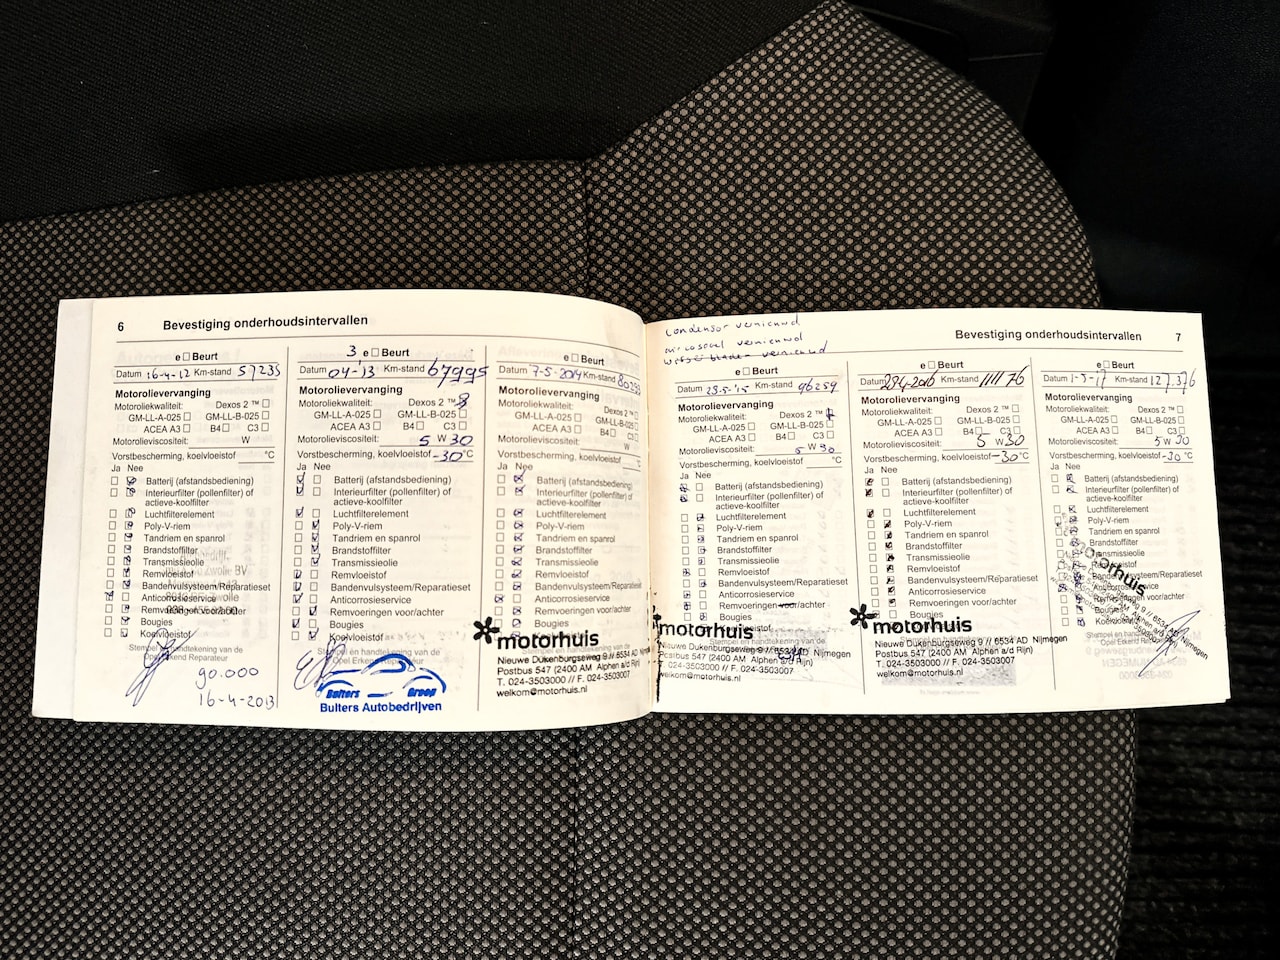 6 Bevestiging onderhoudsintervallen
e Beurt
Datum 16-4-12 Km-stand 57235
Motorolievervanging
Motoroliekwaliteit: Dexos 2 ™
GM-LL-A-025 GM-LL-B-025
ACEA A3 B4 C3
Motorolieviscositeit: W
Vorstbescherming, koelvloeistof °C
Ja Nee
Batterij (afstandsbediening)
Interieurfilter (pollenfilter) of
actieve-koolfilter
Luchtfilterelement
Poly-V-riem
Tandriem en spanrol
Brandstoffilter
Transmissieolie
Remvloeistof
Bandenvulsysteem/Reparatieset
Anticorrosieservice
Remvoeringen voor/achter
Bougies
Koelvloeistof
Stempel en handtekening van de
Opel Erkend Reparateur
90.000
16-4-2013
3 e Beurt
Datum 04-'13 Km-stand 67995
Motorolievervanging
Motoroliekwaliteit: Dexos 2 ™
GM-LL-A-025 GM-LL-B-025
ACEA A3 B4 C3
Motorolieviscositeit: 5 W 30
Vorstbescherming, koelvloeistof -30 °C
Ja Nee
Batterij (afstandsbediening)
Interieurfilter (pollenfilter) of
actieve-koolfilter
Luchtfilterelement
Poly-V-riem
Tandriem en spanrol
Brandstoffilter
Transmissieolie
Remvloeistof
Bandenvulsysteem/Reparatieset
Anticorrosieservice
Remvoeringen voor/achter
Bougies
Koelvloeistof
Stempel en handtekening van de
Opel Erkend Reparateur
Bulters Groep
Bulters Autobedrijven
e Beurt
Datum 7-5-2014 Km-stand 80293
Motorolievervanging
Motoroliekwaliteit: Dexos 2 ™
GM-LL-A-025 GM-LL-B-025
ACEA A3 B4 C3
Motorolieviscositeit:
Vorstbescherming, koelvloeistof °C
Ja Nee
Batterij (afstandsbediening)
Interieurfilter (pollenfilter) of
actieve-koolfilter
Luchtfilterelement
Poly-V-riem
Tandriem en spanrol
Brandstoffilter
Transmissieolie
Remvloeistof
Bandenvulsysteem/Reparatieset
Anticorrosieservice
Remvoeringen voor/achter
Bougies
motorhuis
Nieuwe Dukenburgseweg 9 // 6534 AD
Postbus 547 (2400 AM Alphen a/d Rijn)
T. 024-3503000 // F. 024-3503007
welkom@motorhuis.nl
Bevestiging onderhoudsintervallen 7
condensor vernieuwd
aircoseal vernieuwd
wisserbladen vernieuwd
e Beurt
Datum 28-5-'15 Km-stand 96259
Motorolievervanging
Motoroliekwaliteit: Dexos 2 ™
GM-LL-A-025 GM-LL-B-025
ACEA A3 B4 C3
Motorolieviscositeit: 5 W 30
Vorstbescherming, koelvloeistof °C
Ja Nee
Batterij (afstandsbediening)
Interieurfilter (pollenfilter) of
actieve-koolfilter
Luchtfilterelement
Poly-V-riem
Tandriem en spanrol
Brandstoffilter
Transmissieolie
Remvloeistof
Bandenvulsysteem/Reparatieset
Anticorrosieservice
Remvoeringen voor/achter
Bougies
Koelvloeistof
motorhuis
Nieuwe Dukenburgseweg 9 // 6534 AD Nijmegen
Postbus 547 (2400 AM Alphen a/d Rijn)
T. 024-3503000 // F. 024-3503007
welkom@motorhuis.nl
e Beurt
Datum 28-4-2016 Km-stand 111176
Motorolievervanging
Motoroliekwaliteit: Dexos 2 ™
GM-LL-A-025 GM-LL-B-025
ACEA A3 B4 C3
Motorolieviscositeit: 5 W 30
Vorstbescherming, koelvloeistof -30 °C
Ja Nee
Batterij (afstandsbediening)
Interieurfilter (pollenfilter) of
actieve-koolfilter
Luchtfilterelement
Poly-V-riem
Tandriem en spanrol
Brandstoffilter
Transmissieolie
Remvloeistof
Bandenvulsysteem/Reparatieset
Anticorrosieservice
Remvoeringen voor/achter
Bougies
motorhuis
Nieuwe Dukenburgseweg 9 // 6534 AD Nijmegen
Postbus 547 (2400 AM Alphen a/d Rijn)
T. 024-3503000 // F. 024-3503007
welkom@motorhuis.nl
e Beurt
Datum 1-5-17 Km-stand 127.376
Motorolievervanging
Motoroliekwaliteit: Dexos 2 ™
GM-LL-A-025 GM-LL-B-025
ACEA A3 B4 C3
Motorolieviscositeit: 5 W 30
Vorstbescherming, koelvloeistof -30 °C
Ja Nee
Batterij (afstandsbediening)
Interieurfilter (pollenfilter) of
actieve-koolfilter
Luchtfilterelement
Poly-V-riem
Tandriem en spanrol
Brandstoffilter
Transmissieolie
Remvloeistof
Bandenvulsysteem/Reparatieset
Anticorrosieservice
Remvoeringen voor/achter
Bougies
Koelvloeistof
Stempel en handtekening van de
Opel Erkend Reparateur
motorhuis